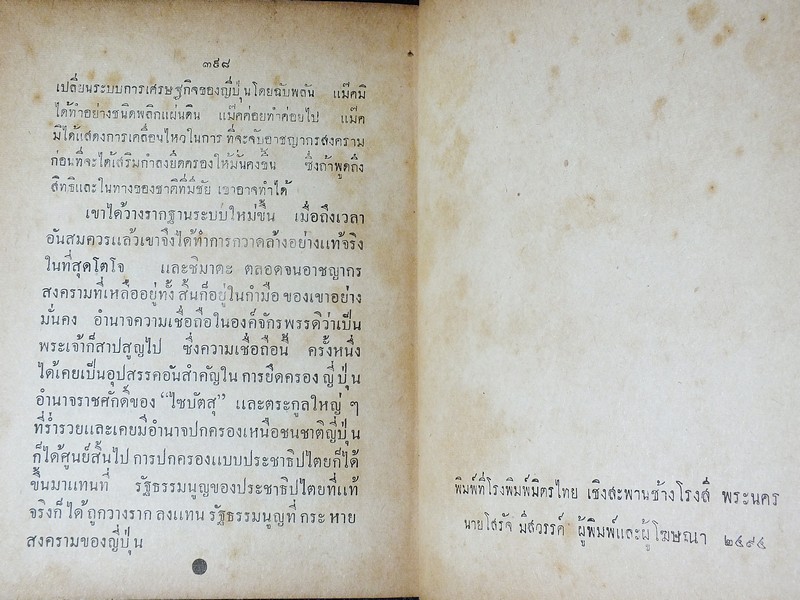 ๓๙๘
เปลี่ยนระบบการเศรษฐกิจของญี่ปุ่นโดยฉับพลัน แม๊คมิ
ได้ทำอย่างชนิดพลิกแผ่นดิน แม๊คค่อยทำค่อยไป แม๊ค
มิได้แสดงการเคลื่อนไหวในการ ที่จะจับอาชญากรสงคราม
ก่อนที่จะได้เสริมกำลงยึดครองให้มั่นคงขึ้น ซึ่งถ้าพูดถึง
สิทธิและในทางของชาติที่มีชัย เขาอาจทำได้
เขาได้วางรากฐานระบบใหม่ขึ้น เมื่อถึงเวลา
อันสมควรแล้วเขาจึงได้ทำการกวาดล้างอย่างแท้จริง
ในที่สุดโตโจ และชิมาดะ ตลอดจนอาชญากร
สงครามที่เหลืออยู่ทั้ง สิ้นก็อยู่ในกำมือ ของเขาอย่าง
มั่นคง อำนาจความเชื่อถือในองค์จักรพรรดิว่าเป็น
พระเจ้าก็สาปสูญไป ซึ่งความเชื่อถือนี้ ครั้งหนึ่ง
ได้เคยเป็นอุปสรรคอันสำคัญใน การยึดครอง ญี่ปุ่น
อำนาจราชศักดิ์ของ “ไซบัตสุ” และตระกูลใหญ่ ๆ
ที่ร่ำรวยและเคยมีอำนาจปกครองเหนือชนชาติญี่ปุ่น
ก็ได้ศูนย์สิ้นไป การปกครองแบบประชาธิปไตยก็ได้
ขึ้นมาแทนที่ รัฐธรรมนูญของประชาธิปไตยที่แท้
จริงก็ ได้ ถูกวางราก ลงแทน รัฐธรรมนูญที่ กระ หาย
สงครามของญี่ปุ่น
พิมพ์ที่โรงพิมพ์มิตรไทย เชิงสะพานช้างโรงสี พระนคร
นายโสรัจ มีสวรรค์ ผู้พิมพ์และผู้โฆษณา ๒๔๙๔